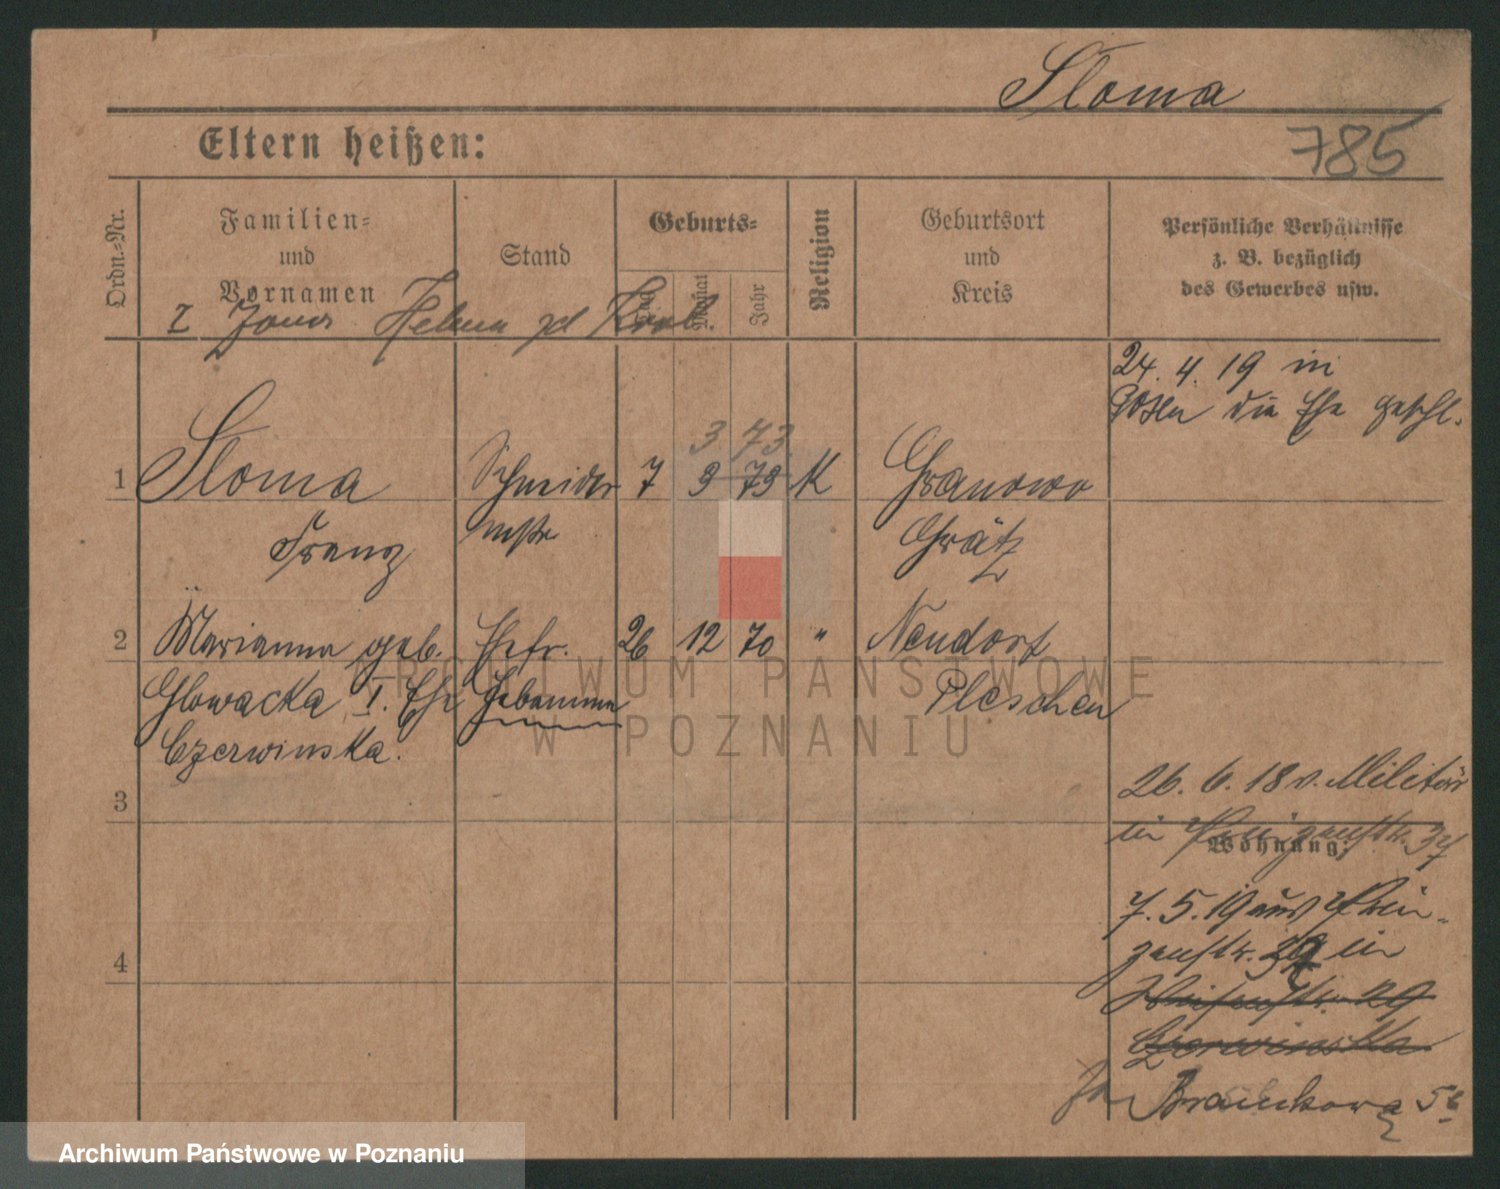 Sloma
Eltern heißen:
785
Ordn.-Nr.
Familien-
und
Vornamen
Stand
Geburts-
Tag
Monat
Jahr
Religion
Geburtsort
und
Kreis
Persönliche Verhältnisse
z. B. bezüglich
des Gewerbes usw.
I Helena
24. 4. 19 in
Posen die Ehe geschl.
3 73
1 Sloma Schneider 7 3 73 K Granowo
Franz mstr Grätz
2 Marianna geb. Ehefr. 26 12 70 " Neudorf
Glowacka I. Ehe Hebamme Pleschen
Czerwinska.
3
26. 6. 18 v. Militär
in 37
Wohnung:
7. 5. 19 aus Prin-
zenstr. 37 in
4
29
Czerwinska
56
ARCHIWUM PAŃSTWOWE
W POZNANIU
Archiwum Państwowe w Poznaniu